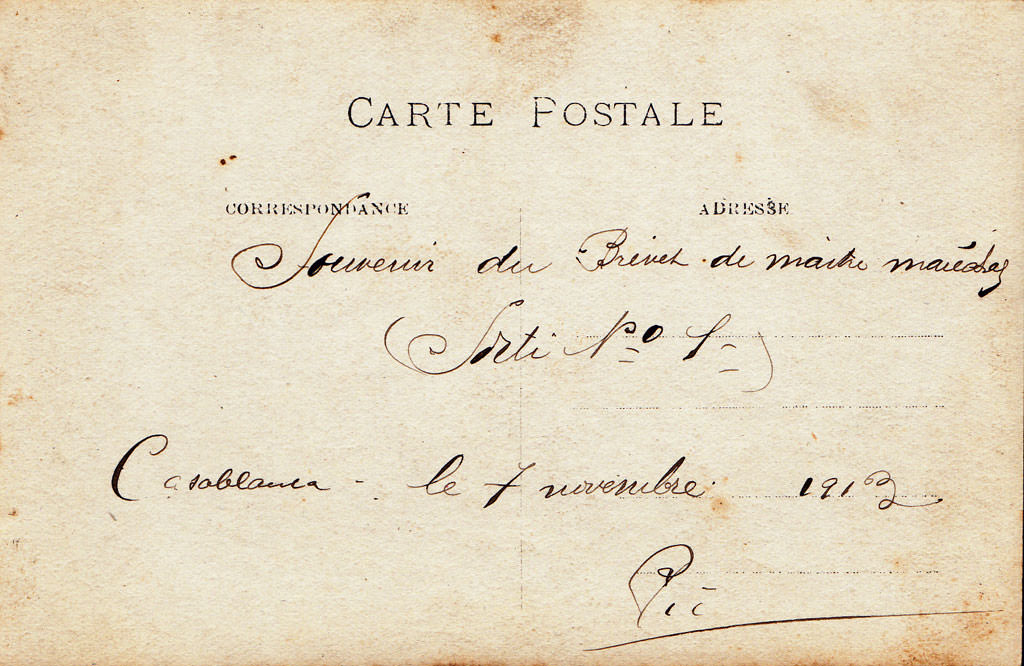 CARTE POSTALE
CORRESPONDANCE ADRESSE
Souvenir du Brevet de maitre maréchal
(Sorti No 1)
Casablanca - le 7 novembre 1913